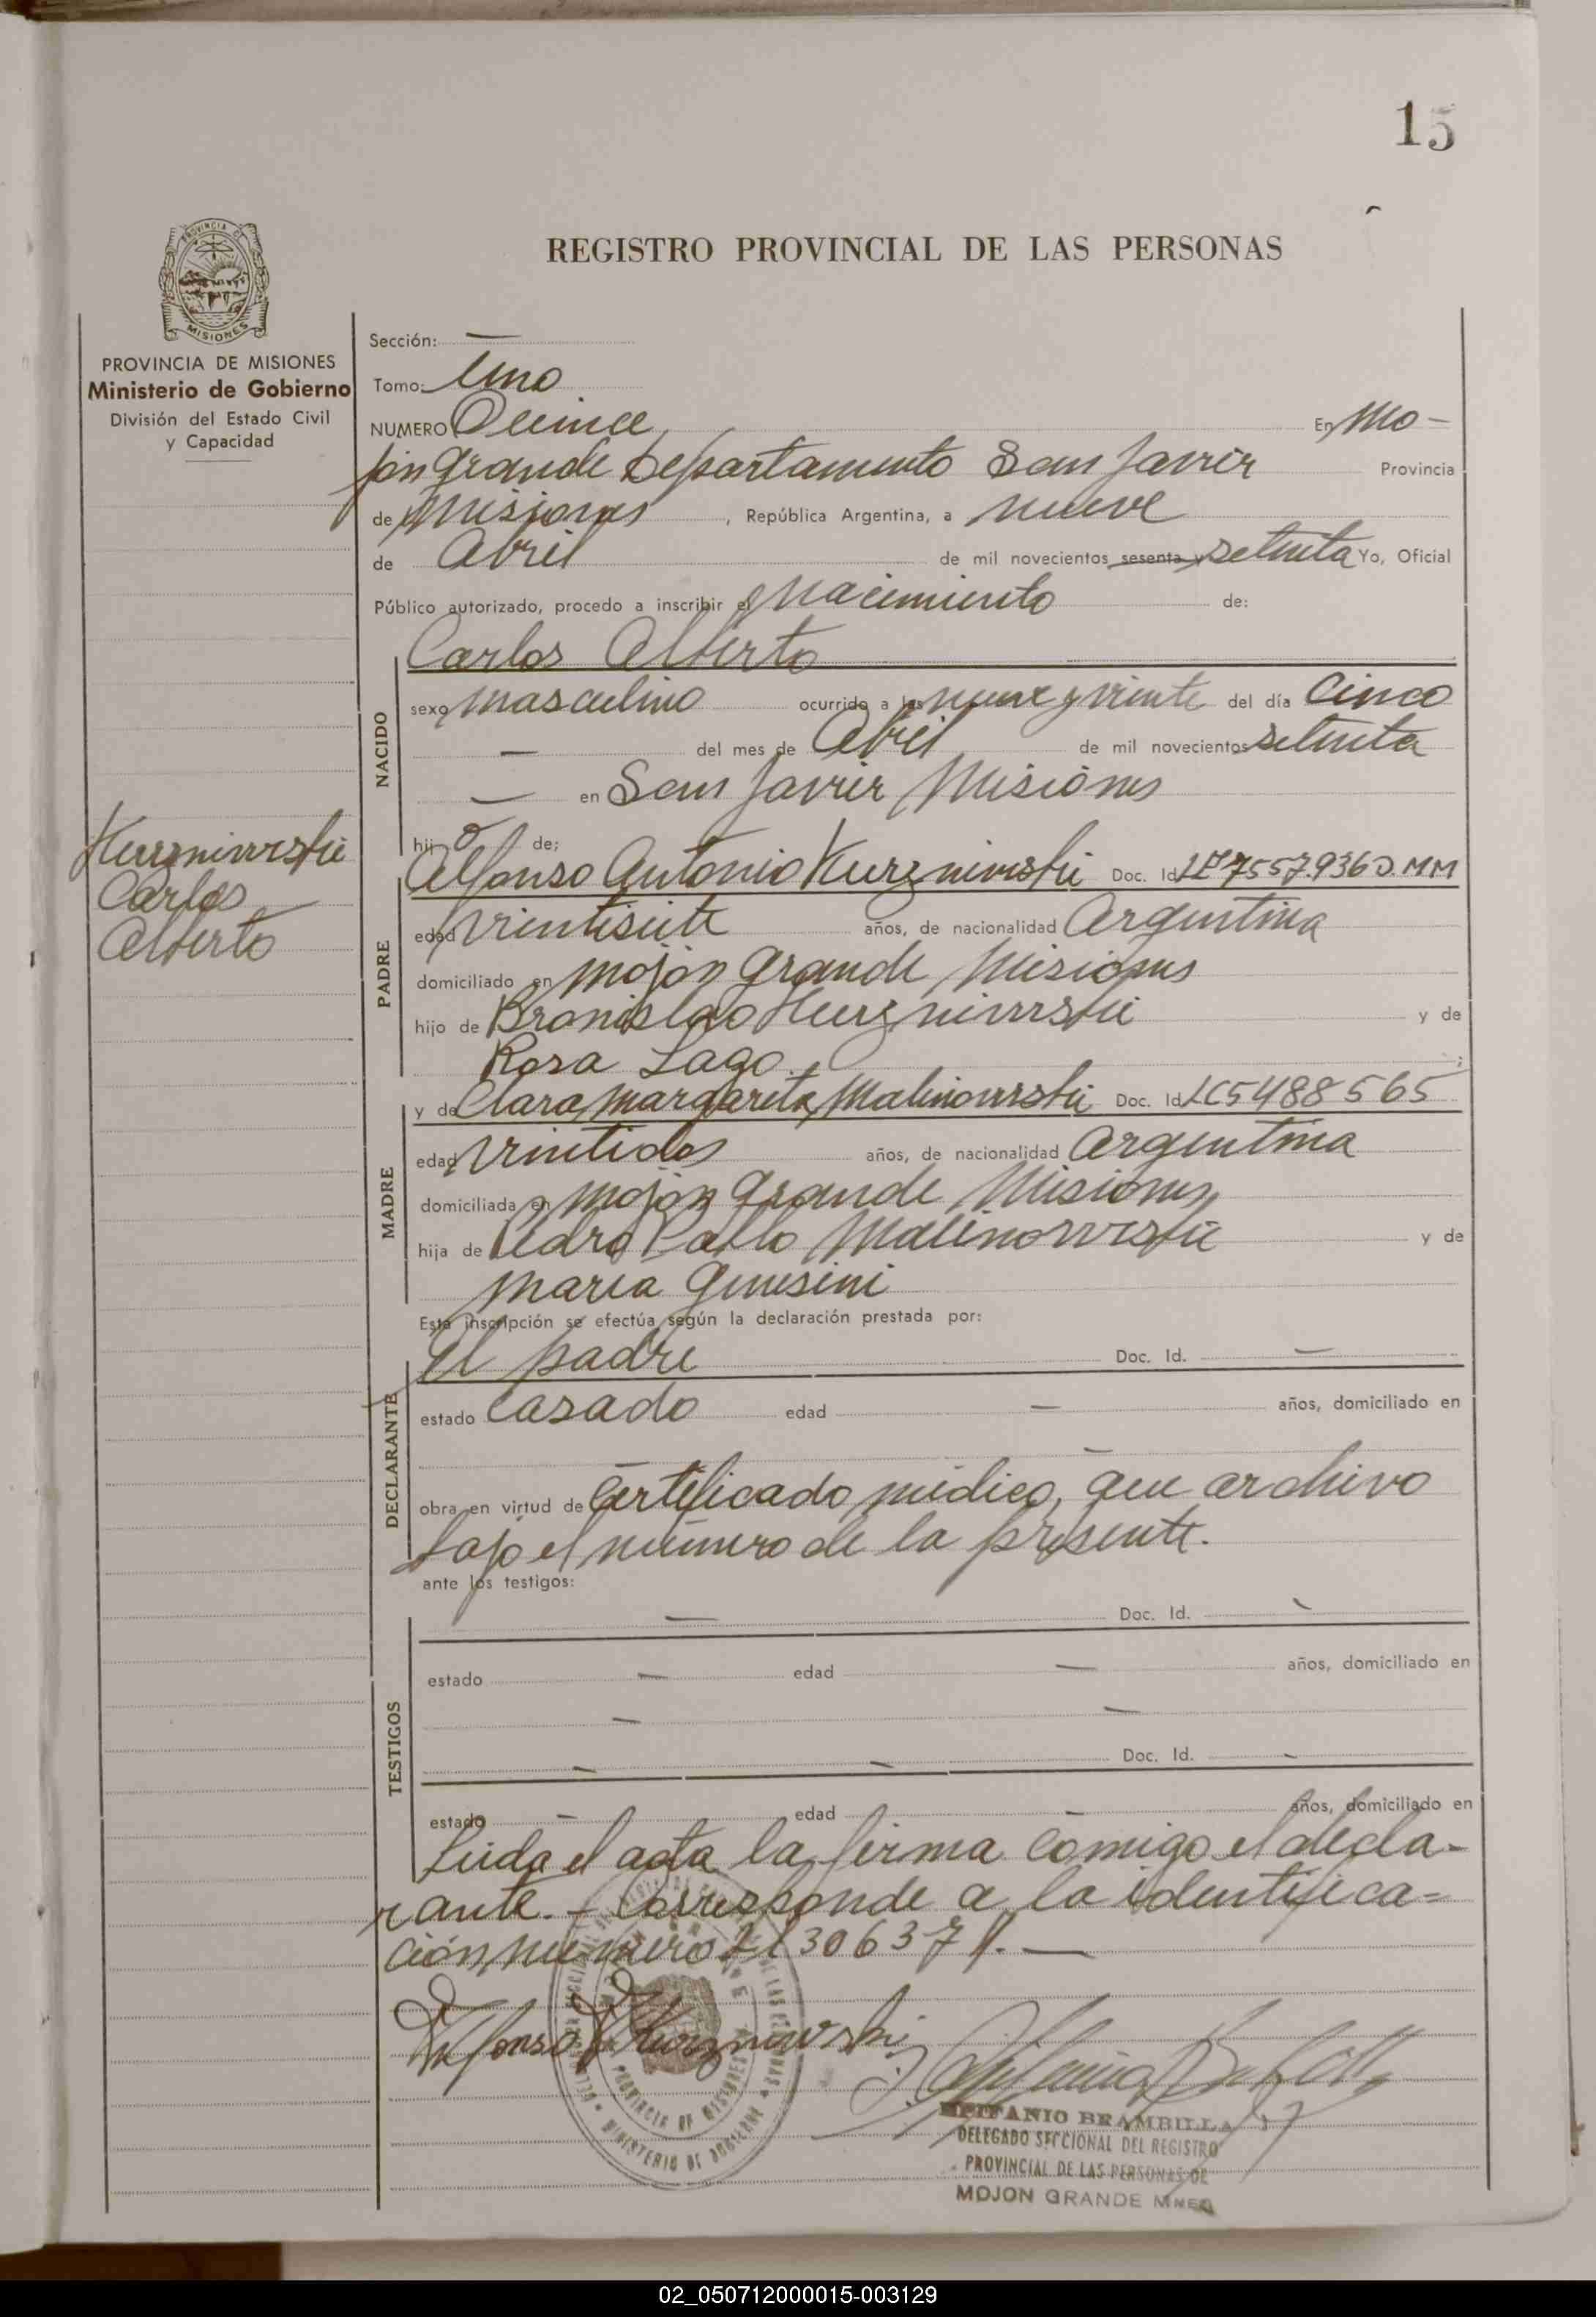 15
REGISTRO PROVINCIAL DE LAS PERSONAS
PROVINCIA DE MISIONES
Ministerio de Gobierno
División del Estado Civil
y Capacidad
Kurzniwrski
Carlos
Alberto
Sección: —
Tomo: Uno
NUMERO Quince En Mo-
jón grande Departamento San Javier Provincia
de Misiones, República Argentina, a nueve
de Abril de mil novecientos sesenta y setenta Yo, Oficial
Público autorizado, procedo a inscribir el Nacimiento de:
NACIDO
Carlos Alberto
sexo masculino ocurrido a las nueve y veinte del día Cinco
— del mes de Abril de mil novecientos setenta
— en San Javier Misiones
hijo de:
PADRE
Alfonso Antonio Kurzniwski Doc. Id. LE 7557.936 D.MM
edad veintisiete años, de nacionalidad Argentina
domiciliado en mojón grande Misiones
hijo de Bronislao Kurzniwrski y de
Rosa Lago. ;
MADRE
y de Clara Margarita Malinowrski Doc. Id. LC5488565
edad veintidos años, de nacionalidad Argentina
domiciliada en mojón grande Misiones
hija de Pedro Pablo Malinowrski y de
Maria Genesini
Esta inscripción se efectúa según la declaración prestada por:
DECLARANTE
El padre Doc. Id. —
estado casado edad — años, domiciliado en
—
obra en virtud de certificado médico, que archivo
bajo el número de la presente.
ante los testigos:
TESTIGOS
— Doc. Id. —
estado — edad — años, domiciliado en
— —
— — Doc. Id. —
estado — edad — años, domiciliado en
Leída el acta la firma comigo el decla-
rante. - Corresponde a la identifica=
ción número 21306371. —
Alfonso Kurzniwski
EPIFANIO BRAMBILLA
DELEGADO SECCIONAL DEL REGISTRO
PROVINCIAL DE LAS PERSONAS DE
MOJON GRANDE MNES
PROVINCIA DE MISIONES
MINISTERIO DE GOBIERNO
02_050712000015-003129